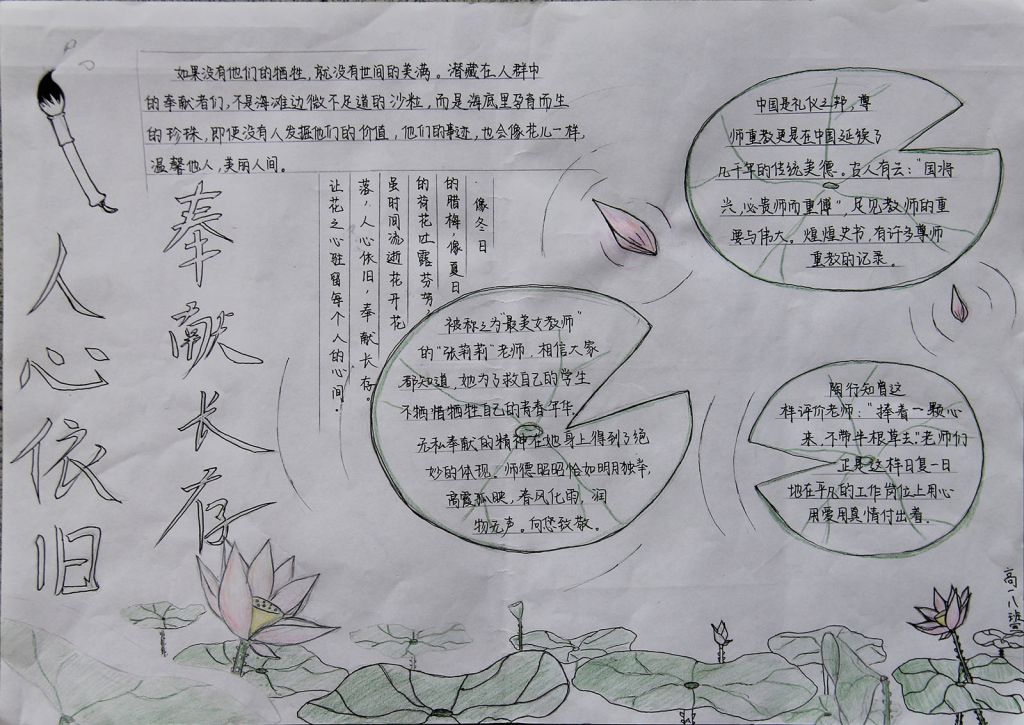 人心依旧
奉献长存
如果没有他们的牺牲，就没有世间的美满。潜藏在人群中
的奉献者们，不是海滩边微不足道的沙粒，而是海底里孕育而生
的珍珠，即使没有人发掘他们的价值，他们的事迹，也会像花儿一样，
温馨他人，美丽人间。
像冬日
的腊梅，像夏日
的荷花吐露芬芳，
虽时间流逝花开花
落，人心依旧，奉献长存。
让花之心驻留每个人的心间。
被称之为“最美女教师”
的“张莉莉”老师，相信大家
都知道，她为了救自己的学生
不牺惜牺牲自己的青春年华，
无私奉献的精神在她身上得到了绝
妙的体现。师德昭昭恰如明月独举，
高霞孤映，春风化雨，润
物无声。向您致敬。
中国是礼仪之邦，尊
师重教更是在中国延续了
几千年的传统美德。古人有云：“国将
兴，必贵师而重傅”，足见教师的重
要与伟大。煌煌史书，有许多尊师
重教的记录。
陶行知曾这
样评价老师：“捧着一颗心
来，不带半根草去”老师们
正是这样日复一日
地在平凡的工作岗位上用心
用爱用真情付出着。
高一八班